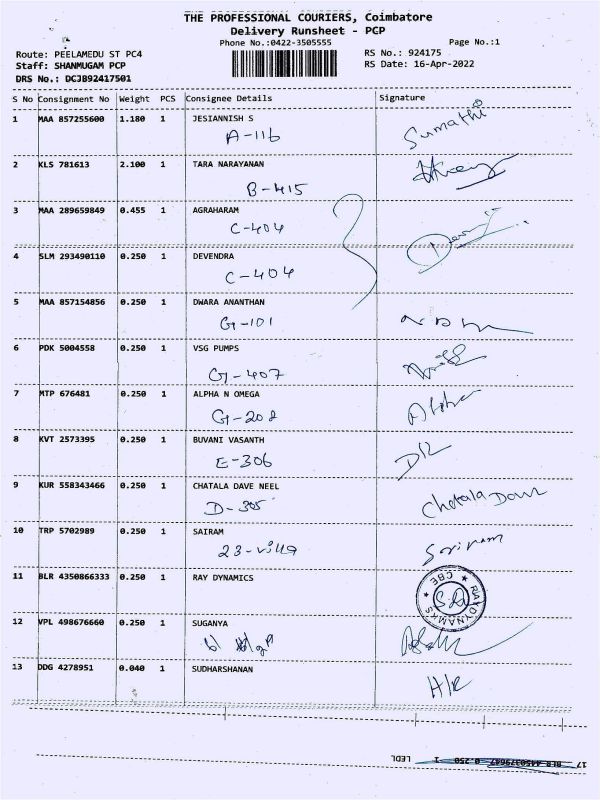 THE PROFESSIONAL COURIERS, Coimbatore
Delivery Runsheet - PCP
Phone No.:0422-3505555 Page No.:1
Route: PEELAMEDU ST PC4 RS No.: 924175
Staff: SHANMUGAM PCP RS Date: 16-Apr-2022
DRS No.: DCJB92417501
S No Consignment No Weight PCS Consignee Details Signature
1 MAA 857255600 1.180 1 JESIANNISH S
A-116 Sumathi
2 KLS 781613 2.100 1 TARA NARAYANAN
B-415
3 MAA 289659849 0.455 1 AGRAHARAM
C-404
4 SLM 293490110 0.250 1 DEVENDRA
C-404
5 MAA 857154856 0.250 1 DWARA ANANTHAN
G-101
6 PDK 5004558 0.250 1 VSG PUMPS
G-407
7 MTP 676481 0.250 1 ALPHA N OMEGA
G-208
8 KVT 2573395 0.250 1 BUVANI VASANTH
E-306
9 KUR 558343466 0.250 1 CHATALA DAVE NEEL
D-305
10 TRP 5702989 0.250 1 SAIRAM
23-villa Sairam
11 BLR 4350866333 0.250 1 RAY DYNAMICS
RAY DYNAMIKS
CBE
12 VPL 498676660 0.250 1 SUGANYA
13 DDG 4278951 0.040 1 SUDHARSHANAN
H/R
17 0.250 1 LEDL